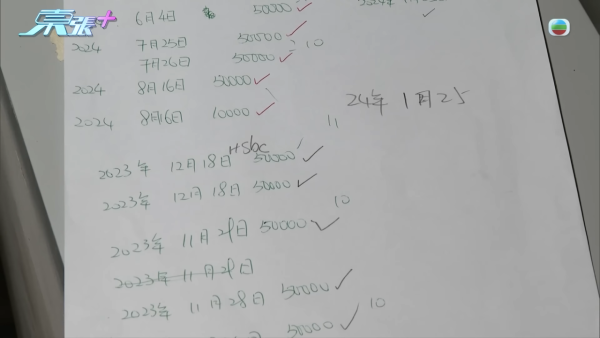 東張+
6月4日 50000
2024 7月25日 50000 10
7月26日 50000
2024 8月16日 50000
2024 8月16日 10000
24年 1月25
11
HSbc
2023年 12月18日 50000
2023年 12月18日 50000
10
2023年 11月29日 50000
2023年 11月29日
2023年 11月28日 50000 10
日 50000